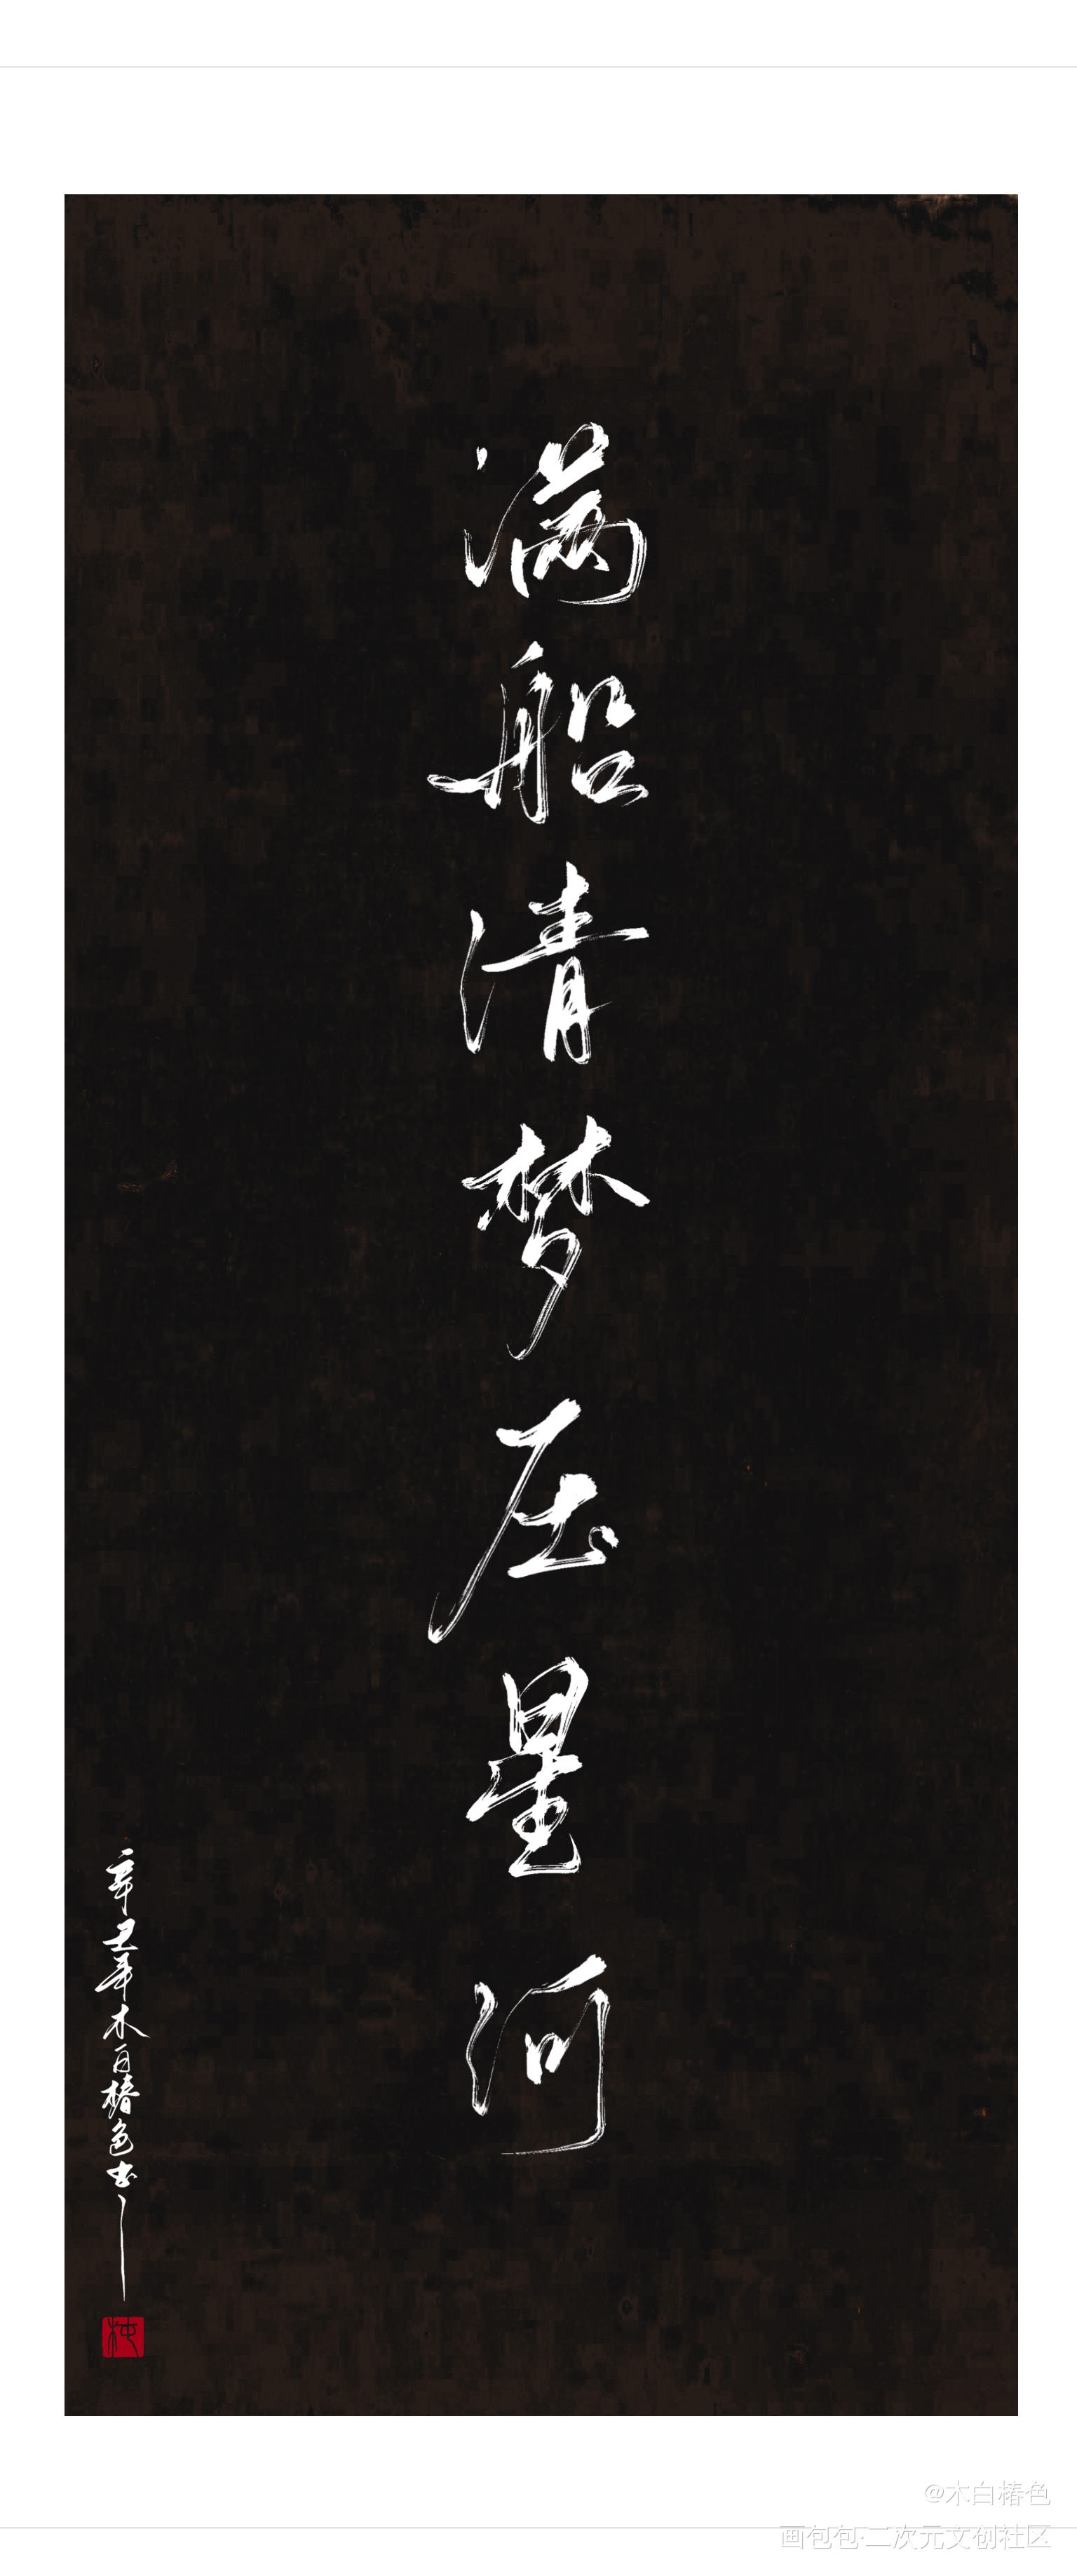 满船清梦压星河
辛丑年木白椿色书
@木白椿色
画包包·二次元文创社区